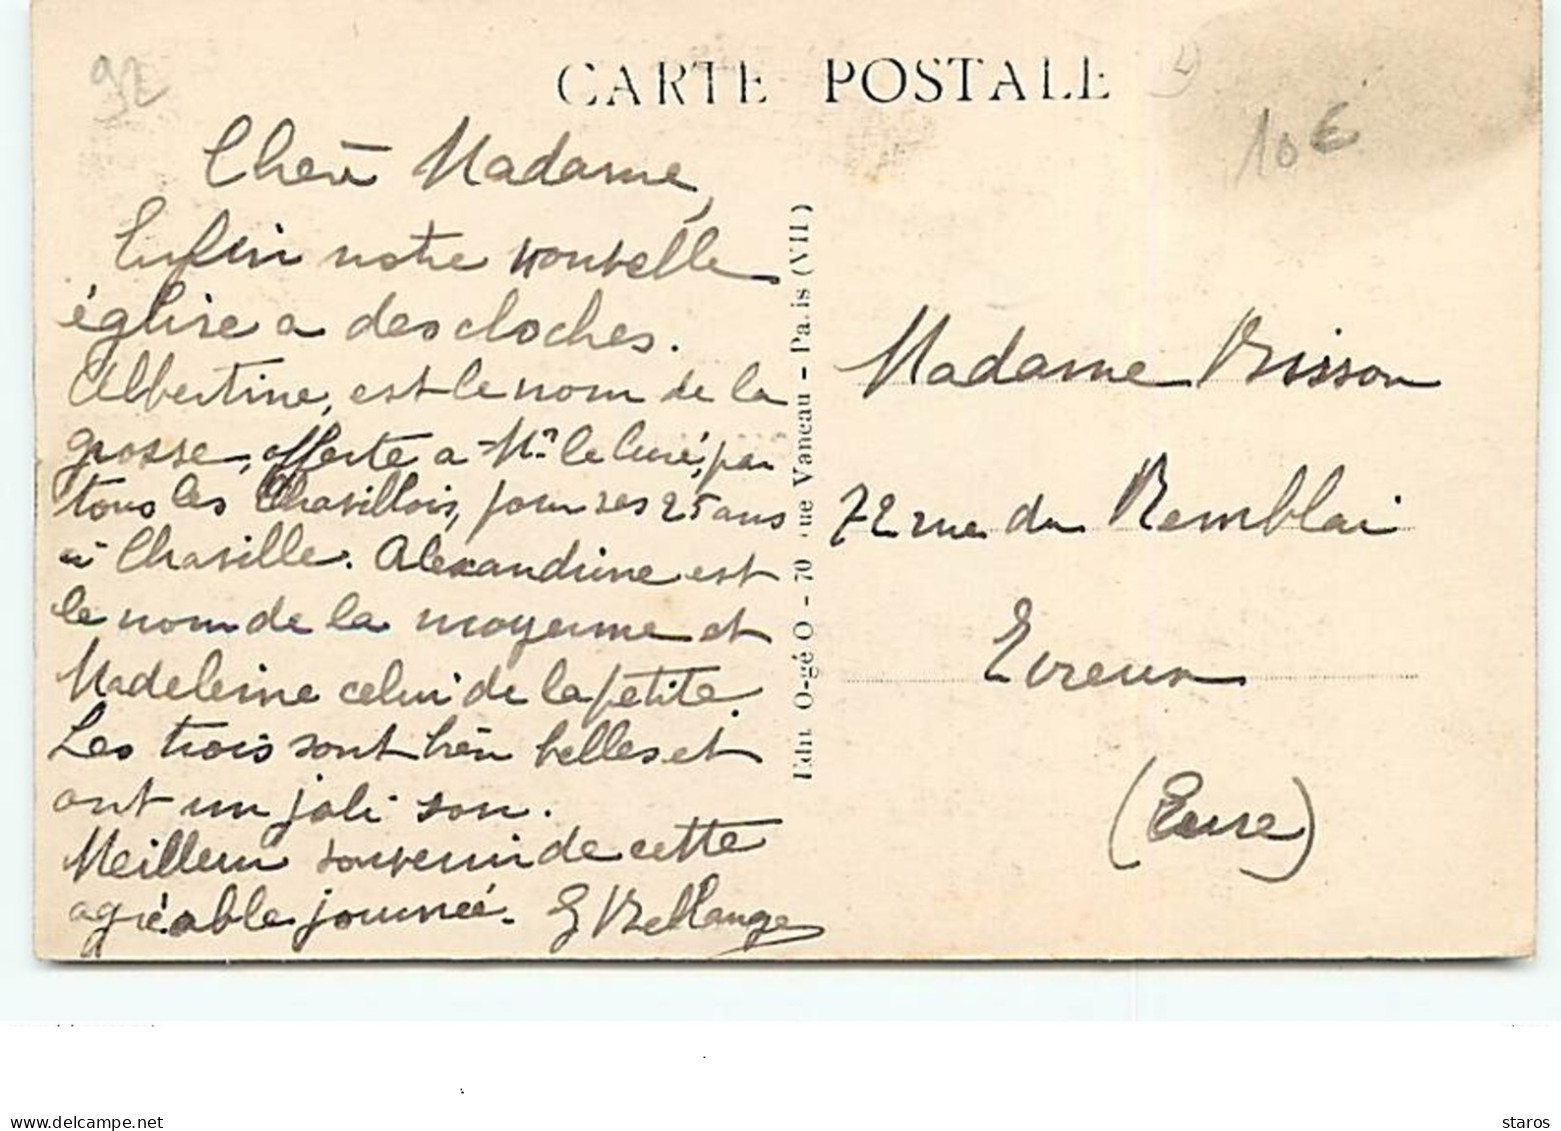 92
CARTE POSTALE
10€
Chère Madame,
Enfin notre nouvelle
église a des cloches.
Albertine, est le nom de la
grosse, offerte a Mr le Curé, par
tous les Chavillois, pour ses 25 ans
à Chaville. Alexandrine est
le nom de la moyenne et
Madeleine celui de la petite.
Les trois sont bien belles et
ont un joli son.
Meilleur souvenir de cette
agréable journée. G Bellanger
Edit. O-gé O - 70 rue Vaneau - Paris (VII)
Madame Brisson
72 rue du Remblai
Evreux
(Eure)
www.delcampe.net
staros